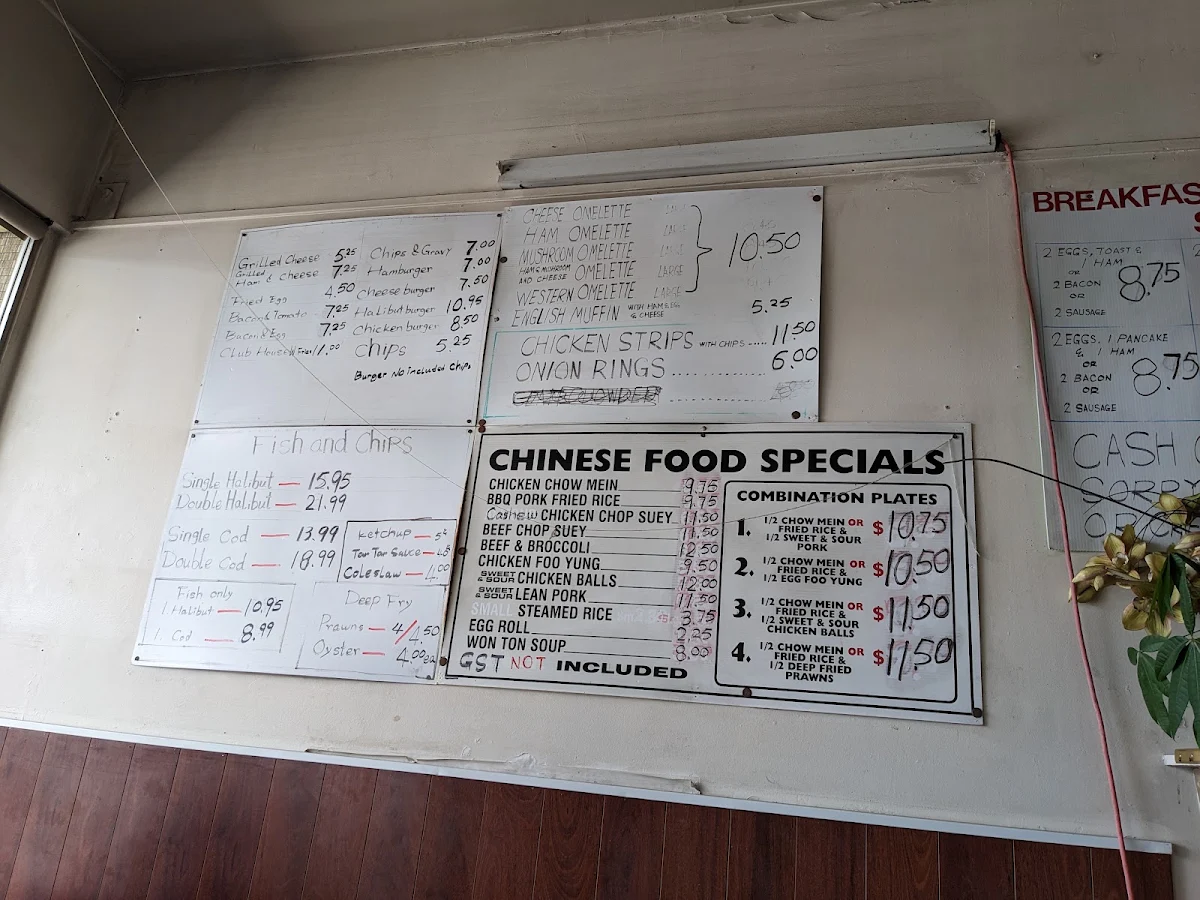 Grilled Cheese 5.25
Grilled Ham & Cheese 7.25
Fried Egg 4.50
Bacon & Tomato 7.25
Bacon & Egg 7.25
Club House W Fries 11.00
Chips & Gravy 7.00
Hamburger 7.00
Cheese burger 7.50
Halibut burger 10.95
Chicken burger 8.50
Chips 5.25
Burger No included chips
CHEESE OMELETTE LARGE
HAM OMELETTE LARGE
MUSHROOM OMELETTE LARGE
HAM & MUSHROOM AND CHEESE OMELETTE LARGE
WESTERN OMELETTE LARGE
10.50
ENGLISH MUFFIN WITH HAM & EGG & CHEESE 5.25
CHICKEN STRIPS WITH CHIPS ..... 11.50
ONION RINGS ............ 6.00
Fish and Chips
Single Halibut — 15.95
Double Halibut — 21.99
Single Cod — 13.99
Double Cod — 18.99
Ketchup
Tar Tar Sauce
Coleslaw — 4.00
Fish only
1. Halibut — 10.95
1. Cod — 8.99
Deep Fry
Prawns — 4/4.50
Oyster — 4.00 ea
CHINESE FOOD SPECIALS
CHICKEN CHOW MEIN 9.75
BBQ PORK FRIED RICE 9.75
Cashew CHICKEN CHOP SUEY 11.50
BEEF CHOP SUEY 11.50
BEEF & BROCCOLI 12.50
CHICKEN FOO YUNG 9.50
SWEET & SOUR CHICKEN BALLS 12.00
SWEET & SOUR LEAN PORK 11.50
SMALL STEAMED RICE 3.75
EGG ROLL 2.25
WON TON SOUP 8.00
GST NOT INCLUDED
COMBINATION PLATES
1. 1/2 CHOW MEIN OR
FRIED RICE &
1/2 SWEET & SOUR
PORK
$10.75
2. 1/2 CHOW MEIN OR
FRIED RICE &
1/2 EGG FOO YUNG
$10.50
3. 1/2 CHOW MEIN OR
FRIED RICE &
1/2 SWEET & SOUR
CHICKEN BALLS
$11.50
4. 1/2 CHOW MEIN OR
FRIED RICE &
1/2 DEEP FRIED
PRAWNS
$11.50
BREAKFAS
2 EGGS, TOAST &
1 HAM
OR
2 BACON
OR
2 SAUSAGE
8.75
2 EGGS, 1 PANCAKE
& 1 HAM
OR
2 BACON
OR
2 SAUSAGE
8.75
CASH
SORRY